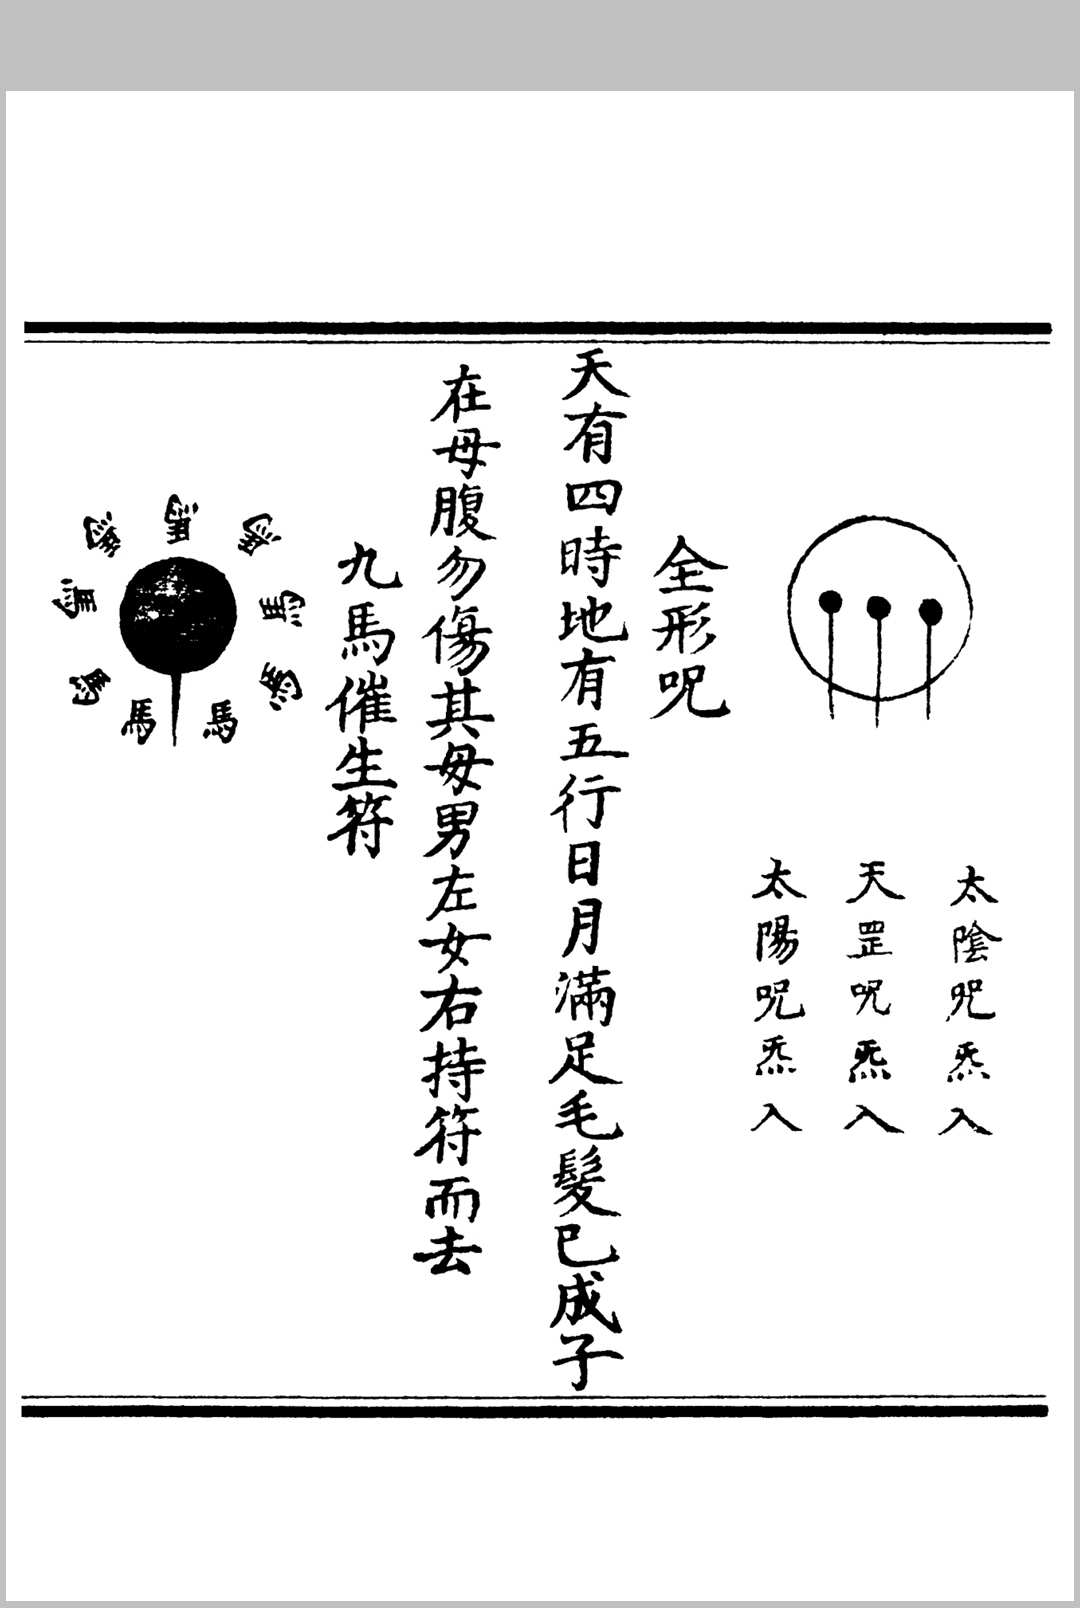 太陰咒炁入
天罡咒炁入
太陽咒炁入
全形咒
天有四時地有五行日月滿足毛髮已成子
在母腹勿傷其母男左女右持符而去
九馬催生符
馬
馬
馬
馬
馬
馬
馬
馬
馬